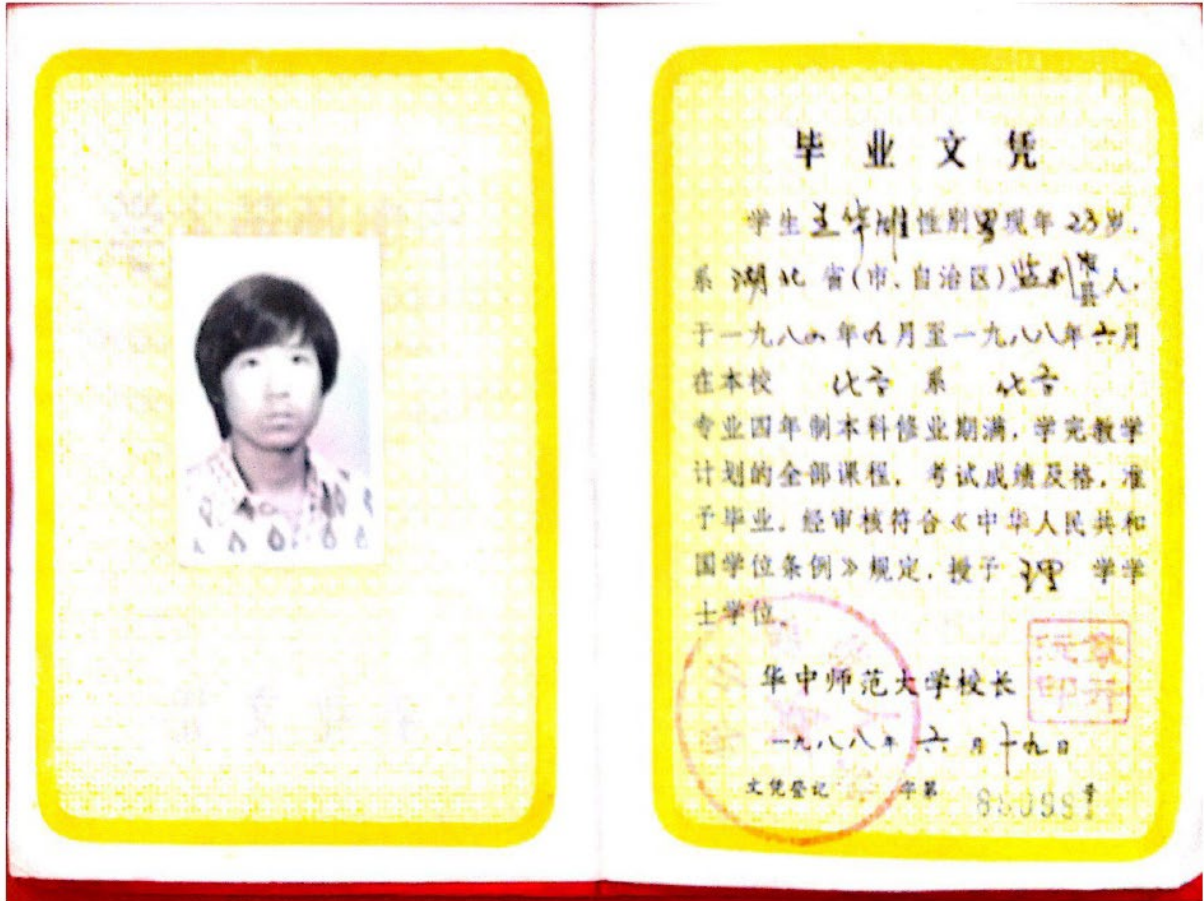 毕业文凭
学生王华雄性别男现年23岁,
系湖北省(市、自治区)监利县人,
于一九八四年九月至一九八八年六月
在本校 化学 系 化学
专业四年制本科修业期满,学完教学
计划的全部课程,考试成绩及格,准
予毕业,经审核符合《中华人民共和
国学位条例》规定,授予 理 学学
士学位。
华中师范大学校长
一九八八年 六 月十九日
文凭登记 字第 号